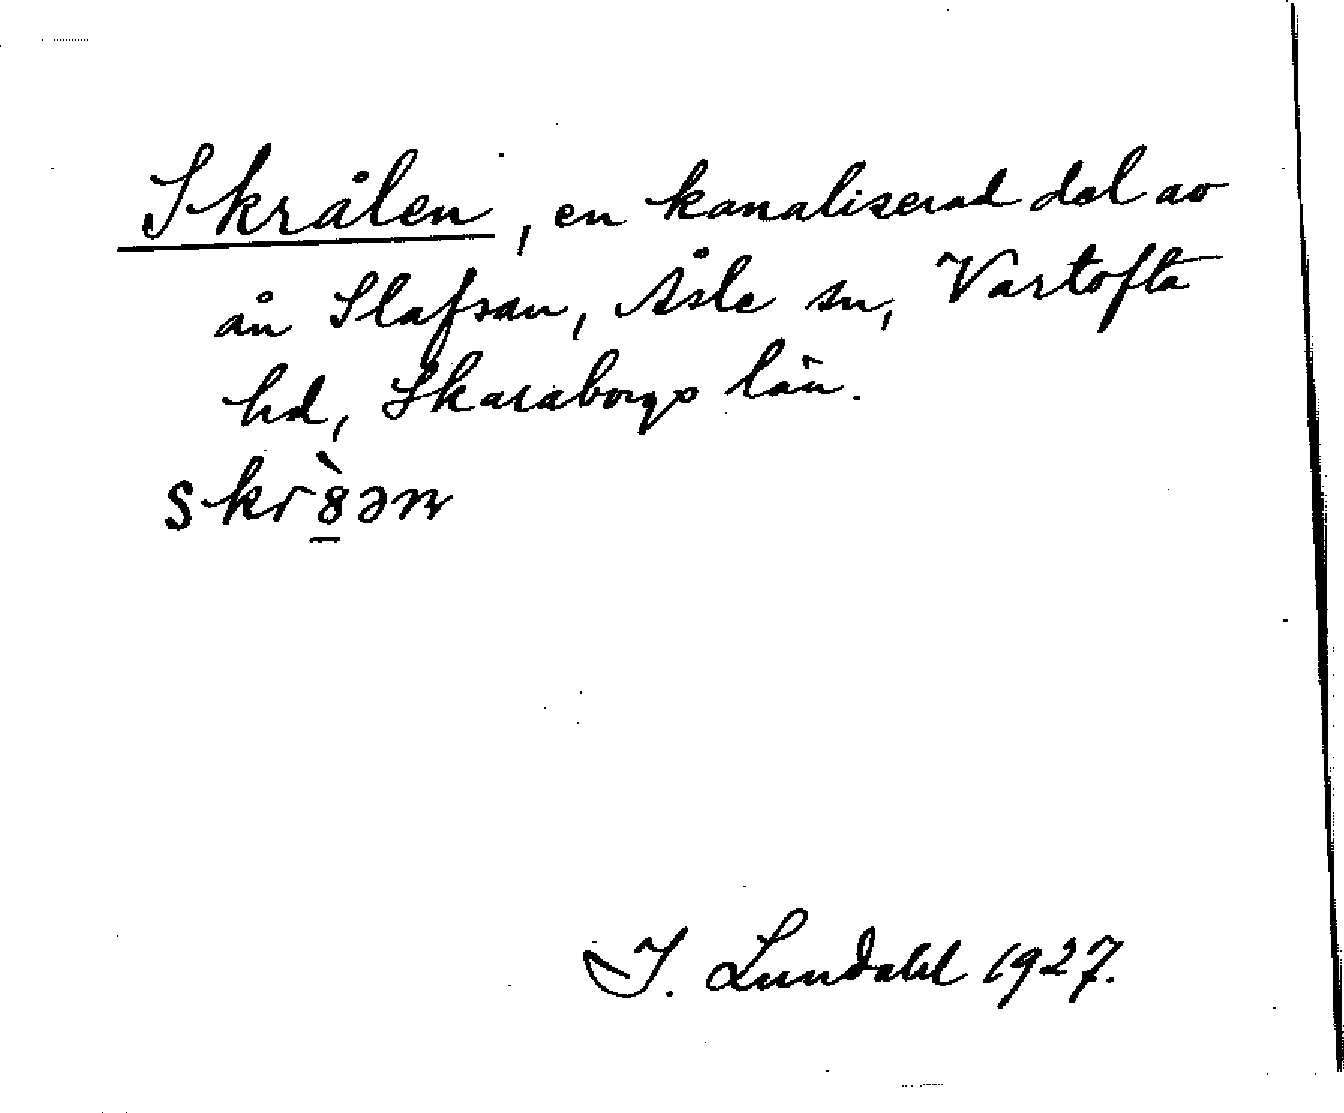 Skrålen, en kanaliserad del av
ån Slafsan, Åsle sn, Vartofta
hd, Skaraborgs län.
skr8̱̀ən
I. Lundahl 1927.